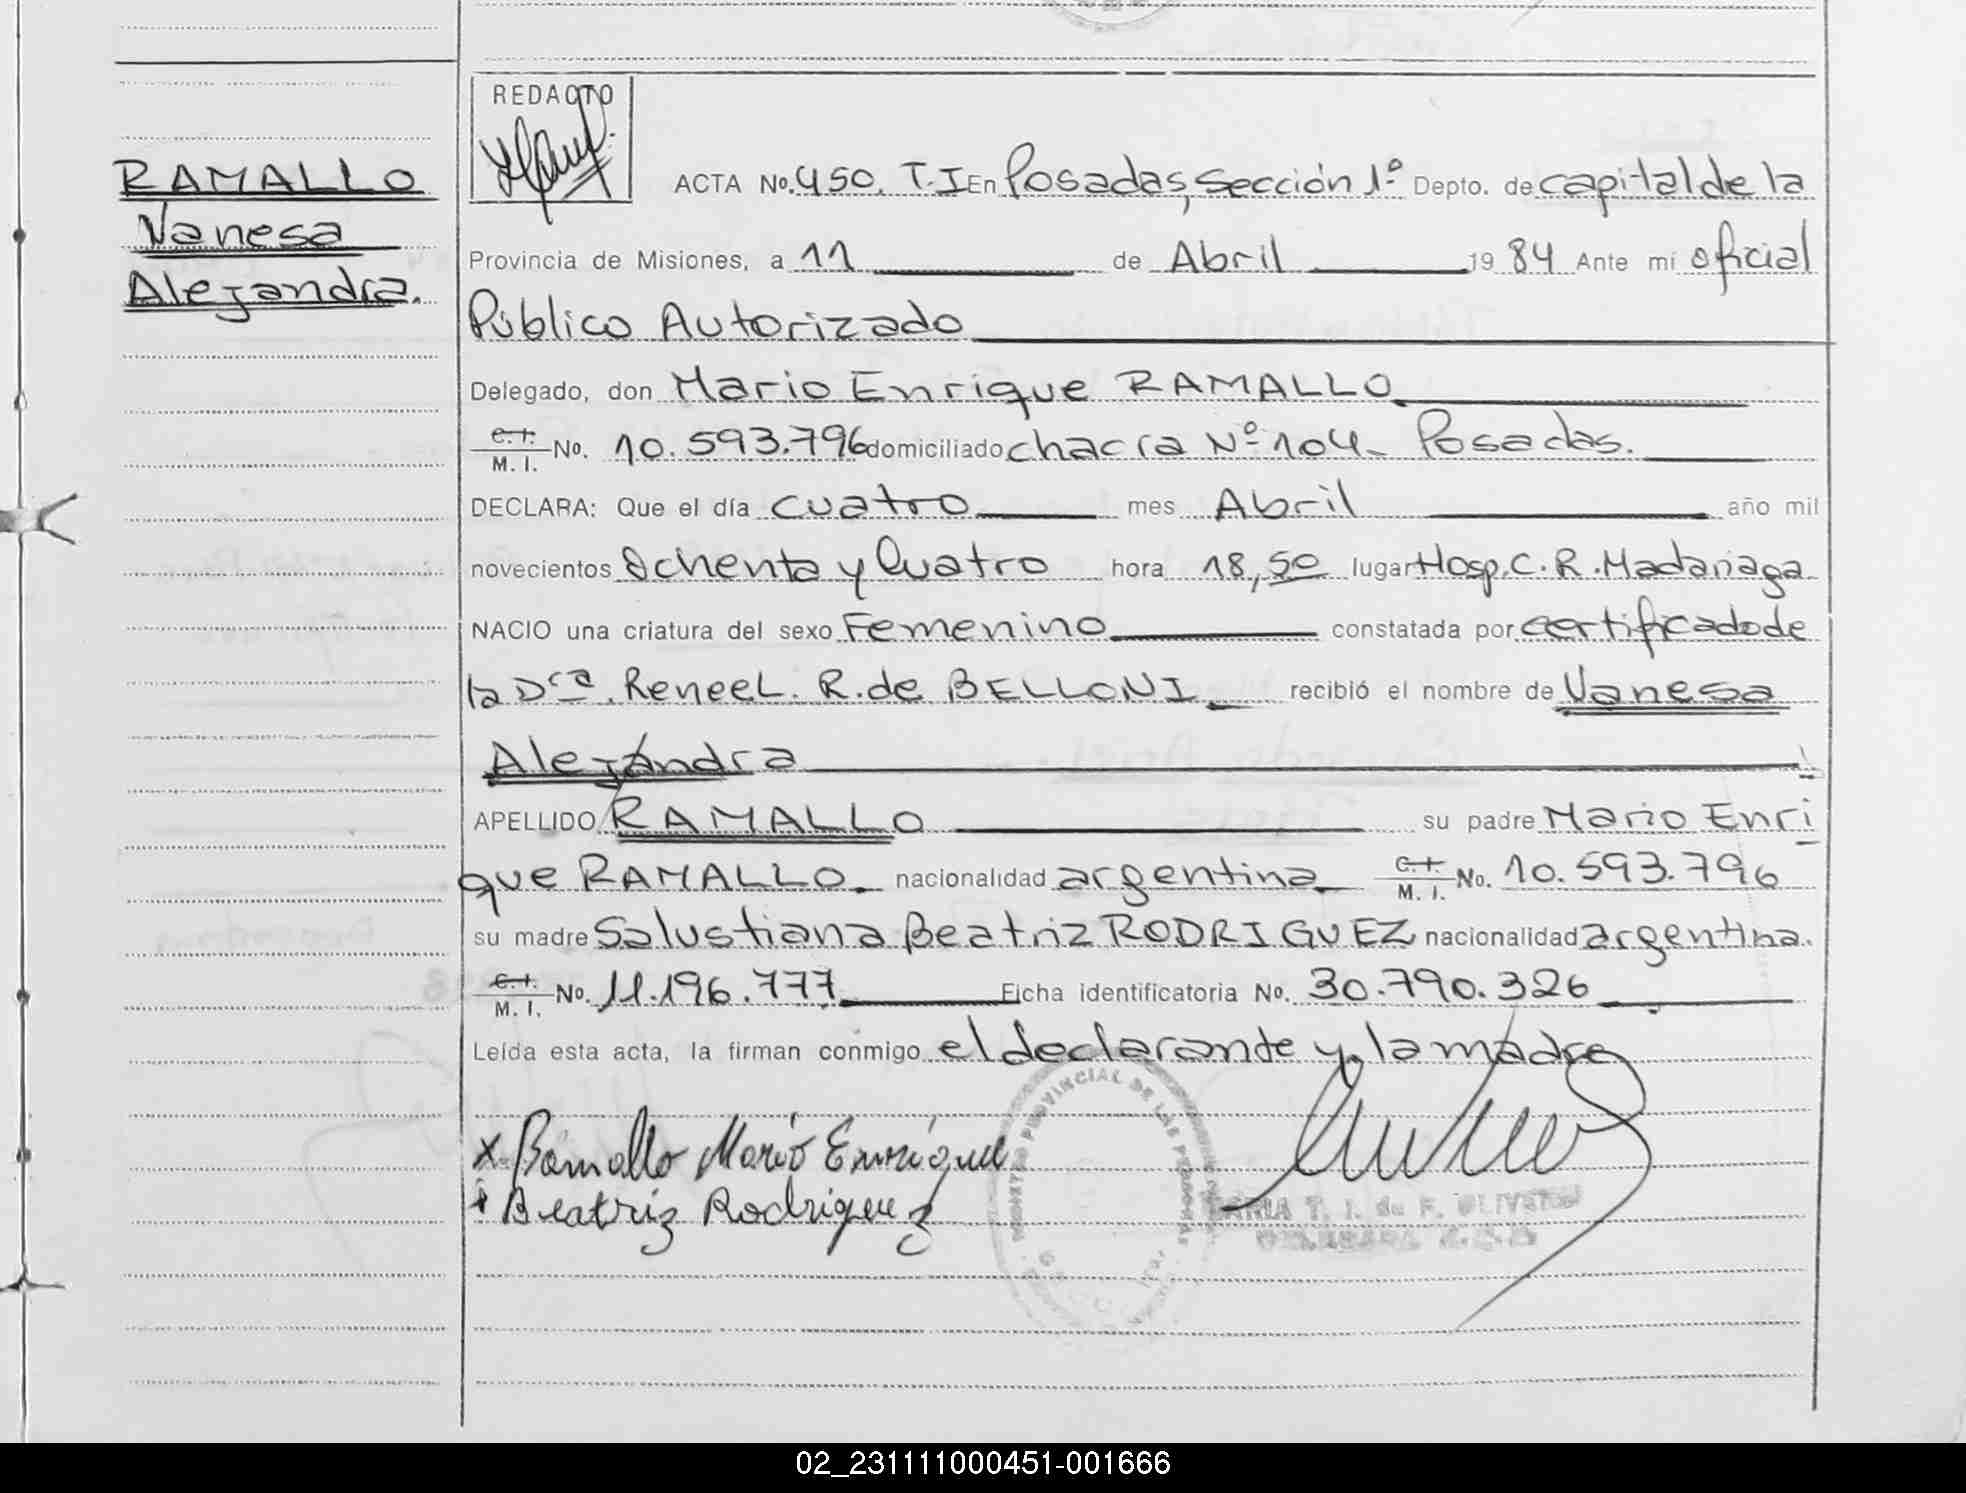 RAMALLO
Vanesa
Alejandra.
REDACTO
ACTA No. 450. T.I En Posadas, Sección 1º Depto. de capital de la
Provincia de Misiones, a 11 de Abril 1984 Ante mí oficial
Público Autorizado
Delegado, don Mario Enrique RAMALLO
C.I. / M. I. No. 10.593.796 domiciliado chacra Nº 104- Posadas.
DECLARA: Que el día cuatro mes Abril año mil
novecientos Ochenta y Cuatro hora 18,50 lugar Hosp. C. R. Madariaga
NACIO una criatura del sexo Femenino constatada por certificado de
la Dra. Renee L. R. de BELLONI recibió el nombre de Vanesa
Alejandra
APELLIDO RAMALLO su padre Mario Enri
que RAMALLO. nacionalidad argentina C.I. / M. I. No. 10.593.796
su madre Salustiana Beatriz RODRIGUEZ nacionalidad argentina.
C.I. / M. I. No. 11.196.777 Ficha identificatoria No. 30.790.326
Leída esta acta, la firman conmigo el declarante y la madre
x Ramallo Mario Enrrique
Beatriz Rodriguez
PROVINCIAL DE LAS PERSONAS
MARIA T. I. de F.
02_231111000451-001666